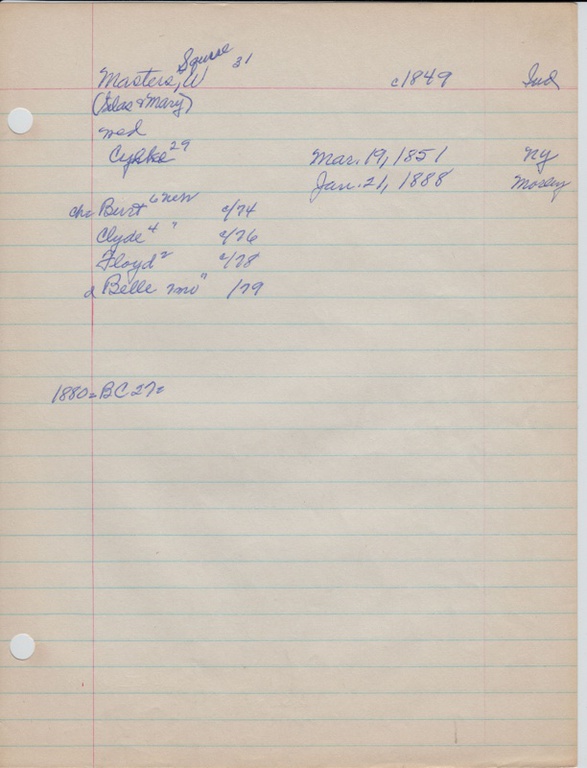 Masters, W Squire 31 c1849 Ind
(Silas & Mary)
wed
29 Mar. 19, 1851 NY
Jan. 21, 1888 Morley
ch: Burt 6 c/74
Clyde 4 " c/76
Floyd 2 c/78
d Belle 7mo " /79
1880=BC27=